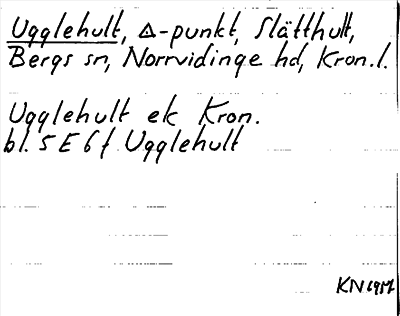 Ugglehult, △-punkt, Slätthult,
Bergs sn, Norrvidinge hd, Kron.l.
Ugglehult ek Kron.
bl. 5 E 6 f Ugglehult